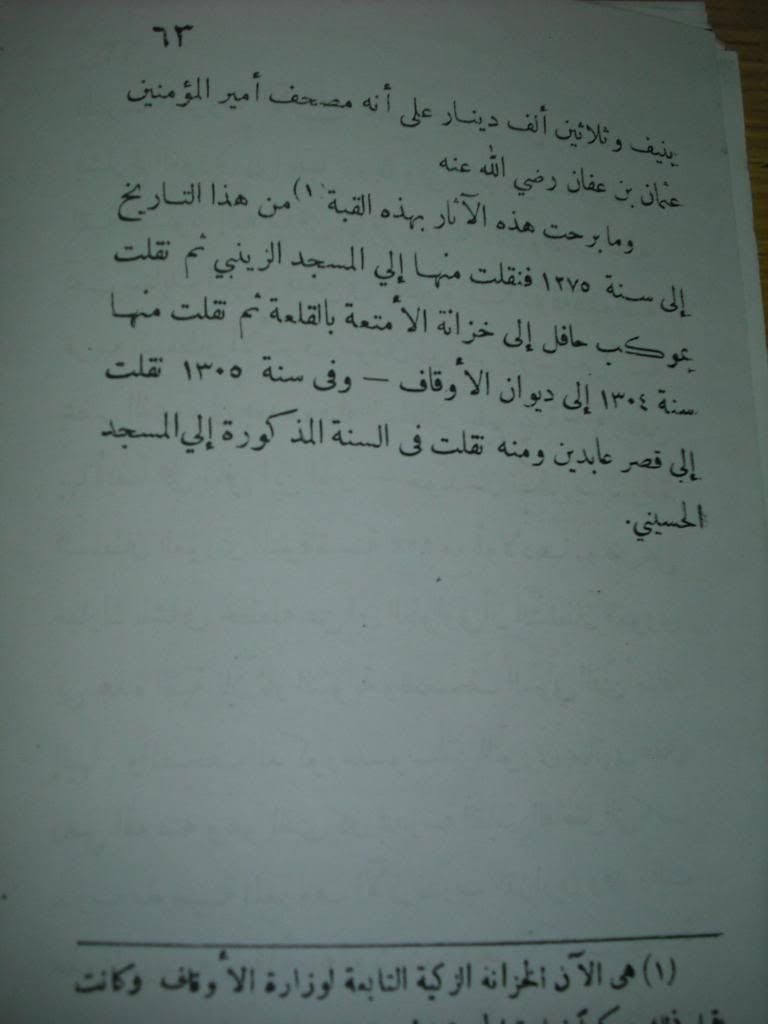 ٦٣
بنيف وثلاثين ألف دينار على أنه مصحف أمير المؤمنين
عثمان بن عفان رضي الله عنه
وما برحت هذه الآثار بهذه القبة (١) من هذا التاريخ
إلى سنة ١٢٧٥ فنقلت منها إلي المسجد الزينبي ثم نقلت
بموكب حافل إلى خزانة الأمتعة بالقلعة ثم نقلت منها
سنة ١٣٠٤ إلى ديوان الأوقاف — وفى سنة ١٣٠٥ نقلت
إلى قصر عابدين ومنه نقلت فى السنة المذكورة إلي المسجد
الحسيني.
(١) هى الآن الخزانة الزكية التابعة لوزارة الأوقاف وكانت